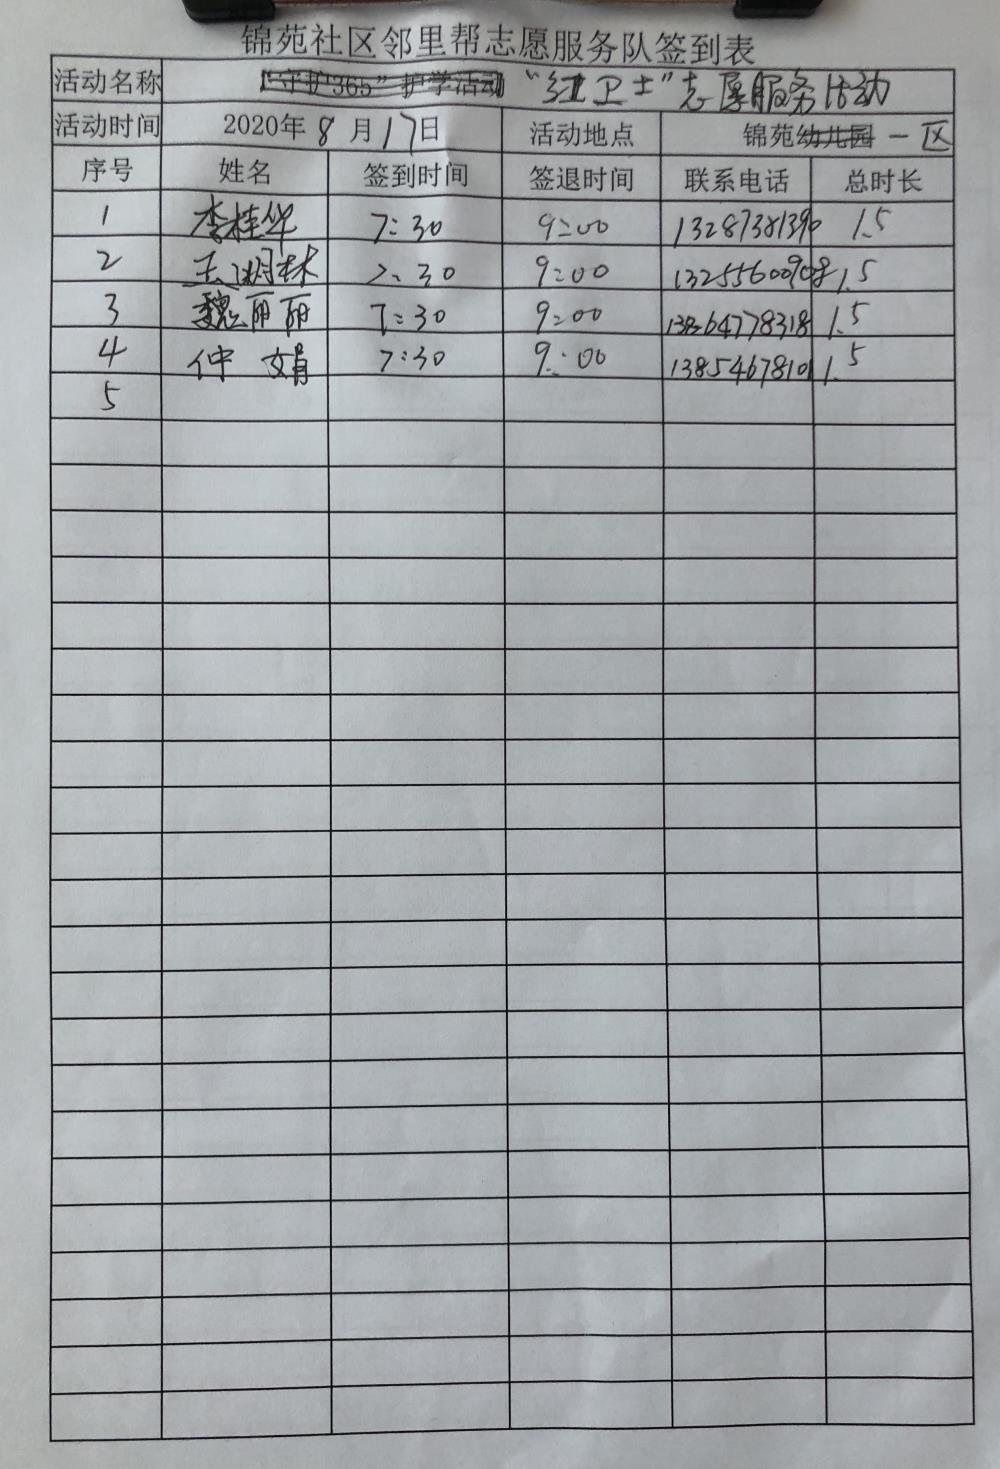 锦苑社区邻里帮志愿服务队签到表
活动名称 “守护365”护学活动 “红卫士”志愿服务活动
活动时间 2020年8月17日 活动地点 锦苑幼儿园一区
序号 姓名 签到时间 签退时间 联系电话 总时长
1 李桂华 7:30 9:00 13287381390 1.5
2 王明林 7:30 9:00 13255600908 1.5
3 魏丽丽 7:30 9:00 13864778318 1.5
4 仲娟 7:30 9:00 1385467810 1.5
5